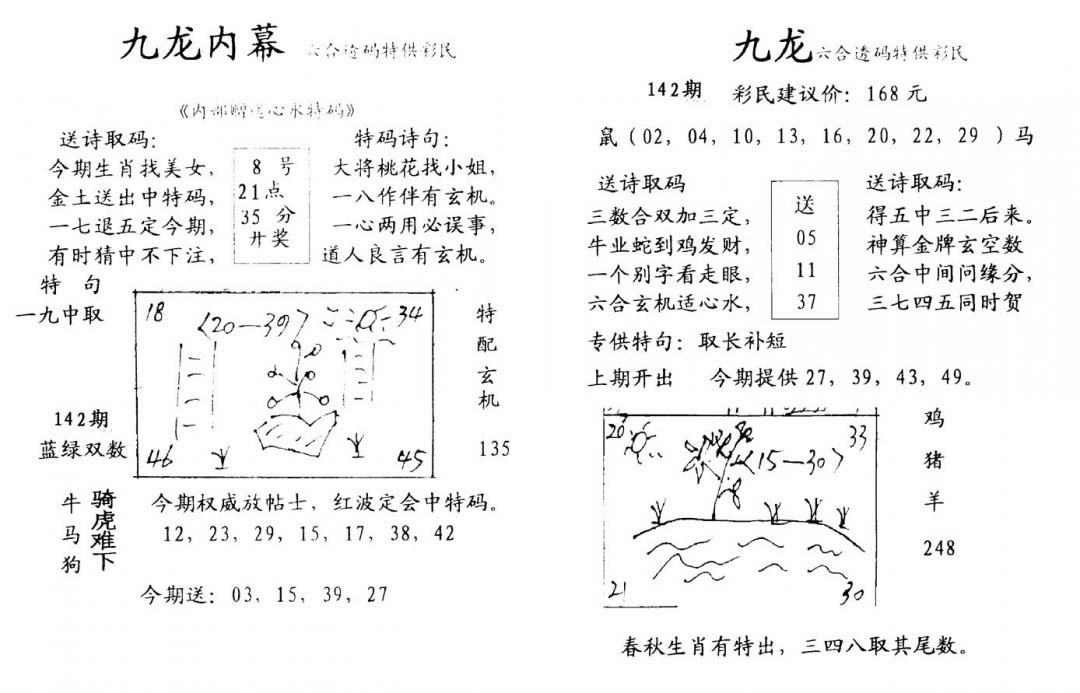 九龙内幕 六合透码特供彩民
《内部赠送心水特码》
送诗取码:
今期生肖找美女,
金土送出中特码,
一七退五定今期,
有时猜中不下注,
8 号
21点
35 分
开奖
特码诗句:
大将桃花找小姐,
一八作伴有玄机。
一心两用必误事,
道人良言有玄机。
特 句
一九中取
142期
蓝绿双数
18
〈20—39〉
34
46
45
特配玄机
135
牛
马
狗
骑虎难下
今期权威放帖士, 红波定会中特码。
12, 23, 29, 15, 17, 38, 42
今期送: 03, 15, 39, 27
九龙 六合透码特供彩民
142期 彩民建议价: 168 元
鼠 (02, 04, 10, 13, 16, 20, 22, 29 ) 马
送诗取码
三数合双加三定,
牛业蛇到鸡发财,
一个别字看走眼,
六合玄机适心水,
送
05
11
37
送诗取码:
得五中三二后来。
神算金牌玄空数
六合中间问缘分,
三七四五同时贺
专供特句: 取长补短
上期开出 今期提供 27, 39, 43, 49。
20
33
〈15—30〉
21
30
鸡
猪
羊
248
春秋生肖有特出, 三四八取其尾数。